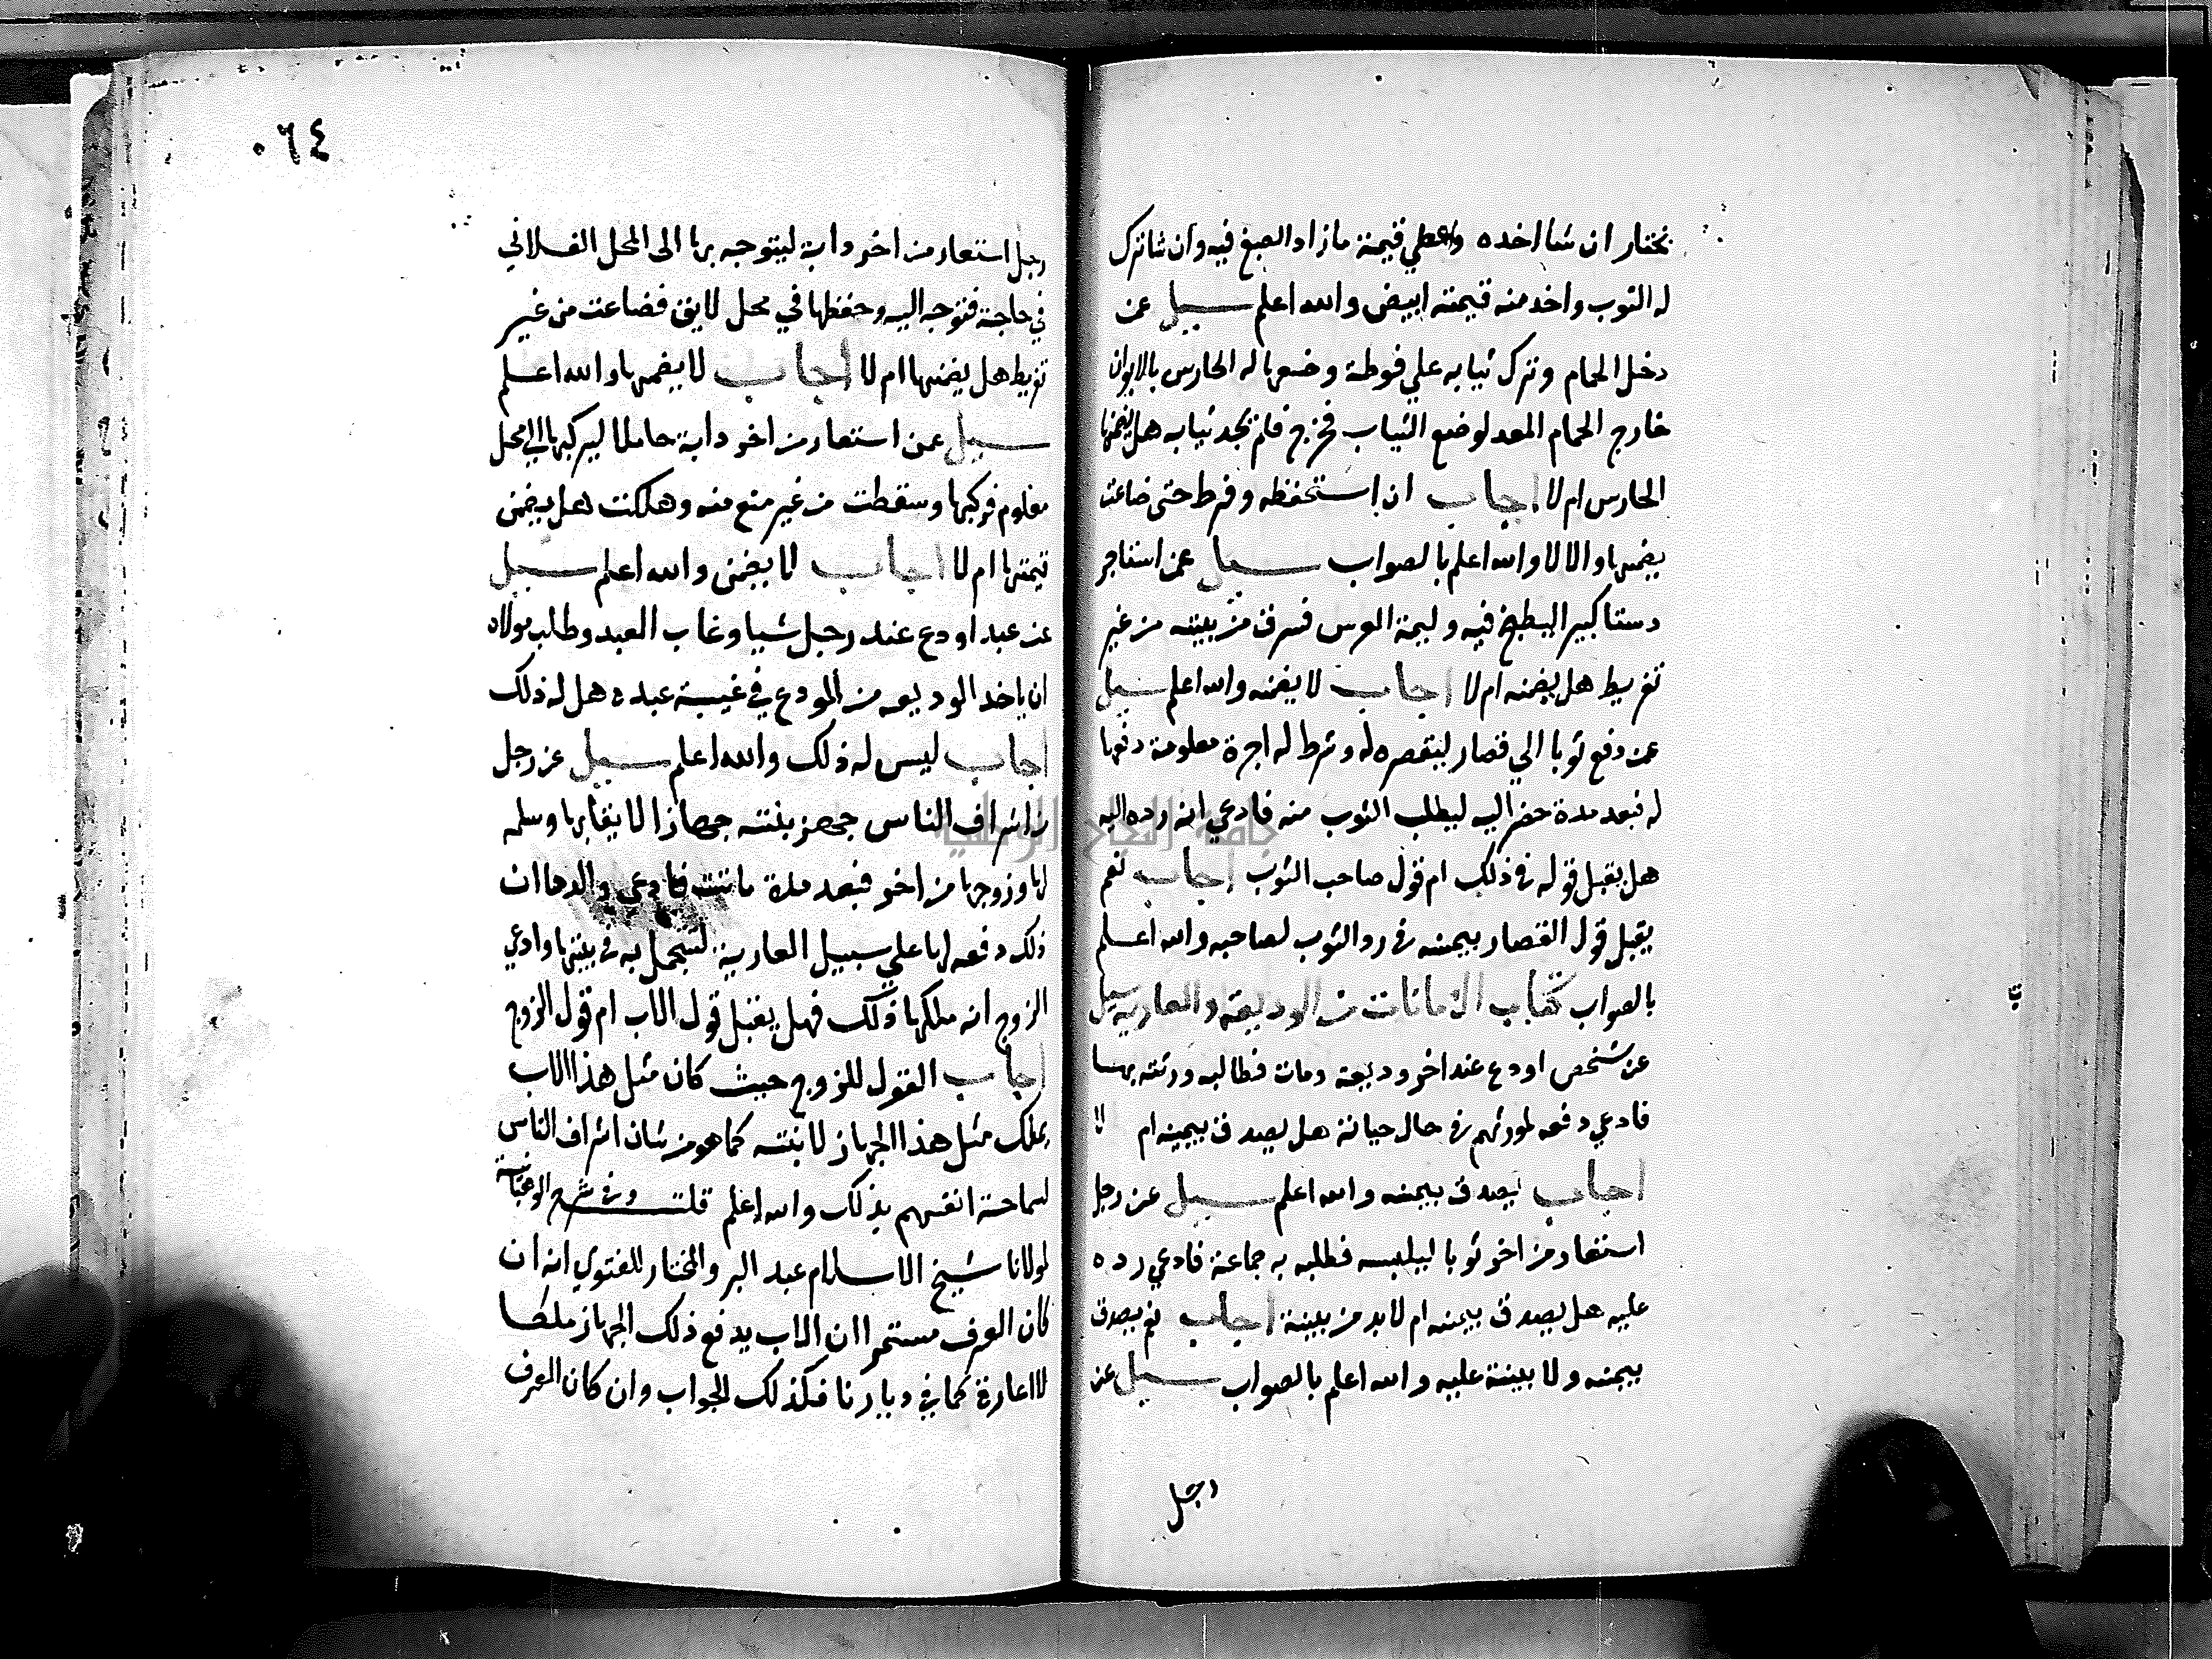 يختار ان شا اخده واعطي قيمة ما زاد الصبغ فيه وان شا ترك
له الثوب واخد منه قيمته ابيض والله اعلم سيل عن
دخل الحمام وترك ثيابه علي فوطة وضعها له الحارس بالايوان
خارج الحمام المعد لوضع الثياب فخرج فلم يجد ثيابه هل يضمنها
الحارس ام لا اجاب ان استحفظه وفرط حتى ضاعت
يضمنها والا لا والله اعلم بالصواب سيل عمن استاجر
دستا كبير اليطبخ فيه وليمة العرس فسرق من بيته من غير
تفريط هل يضمنه ام لا اجاب لا يضمنه والله اعلم سيل
عمن دفع ثوبا الي قصار ليقصره له وشرط له اجرة معلومة دفعها
له فبعد مدة حضر اليه ليطلب الثوب منه فادعي انه رده اليه
هل يقبل قوله في ذلك ام قول صاحب الثوب اجاب نعم
يقبل قول القصار بيمينه في رد الثوب لصاحبه والله اعلم
بالصواب كتاب الامانات من الوديعة والعارية سيل
عن شخص اودع عند اخر وديعة ومات فطالبه ورثته بها
فادعي دفعه لمورثهم في حال حياته هل يصدق بيمينه ام لا
اجاب يصدق بيمينه والله اعلم سيل عن رجل
استعار من اخر ثوبا ليلبسه فطلبه به جماعة فادعي رده
عليه هل يصدق بيمينه ام لابد من بينة اجاب نعم يصدق
بيمينه ولا بينة عليه والله اعلم بالصواب سيل عن
رجل
٠٦٤
رجل استعار من اخر دابة ليتوجه بها الى المحل الفلاني
في حاجة فتوجه اليه وحفظها في محل لايق فضاعت من غير
تفريط هل يضمنها ام لا اجاب لا يضمنها والله اعلم
سيل عمن استعار من اخر دابة حاملا ليركبها الي محل
معلوم فركبها وسقطت من غير منع منه وهلكت هل يضمن
قيمتها ام لا اجاب لا يضمن والله اعلم سيل
عن عبد اودع عند رجل شيا وغاب العبد وطلب مولاه
ان ياخد الوديعه من المودع في غيبة عبده هل له ذلك
اجاب ليس له ذلك والله اعلم سيل عن رجل
من اشراف الناس جهز بنته جهازا لا يقابها وسلمه
لها وزوجها من اخر فبعد مدة ماتت فادعي والدها ان
ذلك دفعه لها علي سبيل العارية لتتجمل به في بيتها وادعي
الزوج انه ملكها ذلك فهل يقبل قول الاب ام قول الزوج
اجاب القول للزوج حيث كان مثل هذا الاب
يملك مثل هذا الجهاز لابنته كما هو من شان اشراف الناس
لسماحة انفسهم بذلك والله اعلم قلت وفي شرح الوهبانية
لمولانا شيخ الاسلام عبد البر والمختار للفتوي انه ان
كان العرف مستمرا ان الاب يدفع ذلك الجهاز ملكا
لا اعارة كما في ديارنا فكذلك الجواب وان كان العرف
جامعة النجاح الوطنية